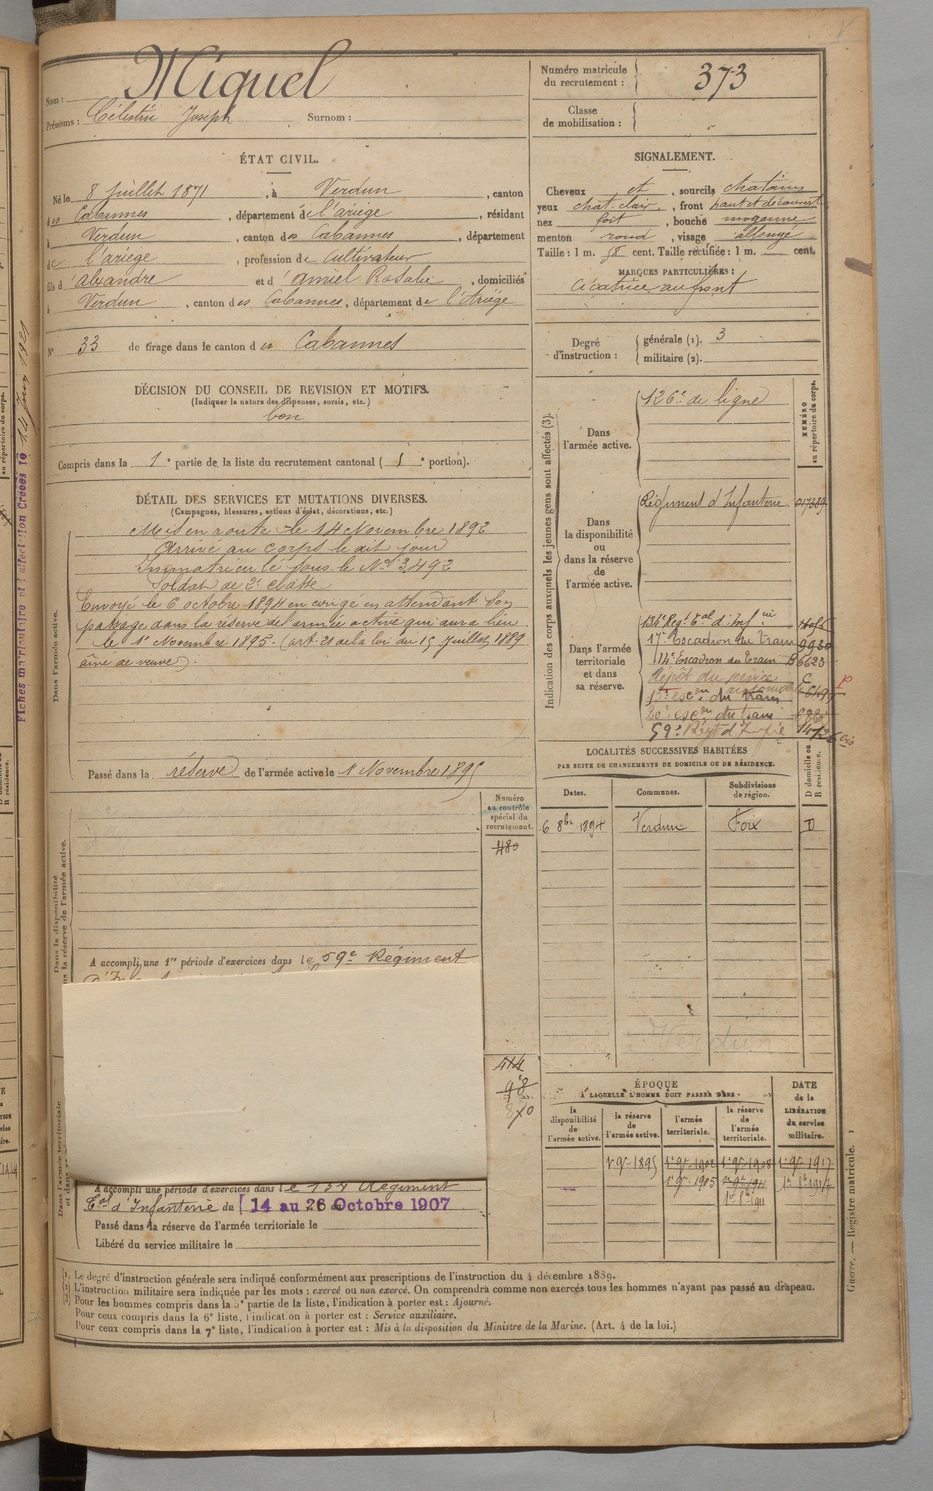 Nom : Miquel
Prénoms : Célestin Joseph Surnom :
Numéro matricule du recrutement : 373
Classe de mobilisation :
ÉTAT CIVIL.
Né le 8 Juillet 1871, à Verdun, canton
des Cabannes, département de l'ariège, résidant
à Verdun, canton des Cabannes, département
de l'ariège, profession de Cultivateur
fils d'alexandre et d'amiel Rosalie, domiciliés
à Verdun, canton des Cabannes, département de l'Ariége
N° 33 de tirage dans le canton des Cabannes
SIGNALEMENT.
Cheveux et, sourcils chatains
yeux chat. clair, front haut et découvert
nez fort, bouche moyenne
menton rond, visage allongé
Taille : 1 m. 58 cent. Taille rectifiée : 1 m. cent.
MARQUES PARTICULIÈRES :
Cicatrice au front
Degré d'instruction : générale (1). 3
militaire (2).
DÉCISION DU CONSEIL DE REVISION ET MOTIFS.
(Indiquer la nature des dispenses, sursis, etc.)
bon
Compris dans la 1e partie de la liste du recrutement cantonal (1e portion).
DÉTAIL DES SERVICES ET MUTATIONS DIVERSES.
(Campagnes, blessures, actions d'éclat, décorations, etc.)
Dans l'armée active.
Mis en route le 14 Novembre 1892
Arrivé au corps le dit jour
Immatriculé sous le No 3493
Soldat de 2e classe
Envoyé le 6 octobre 1894 en congé en attendant son
passage dans la réserve de l'armée active qui aura lieu
le 1er Novembre 1895. (art. 21 de la loi du 15 Juillet 1889
aîné de veuve).
Passé dans la réserve de l'armée active le 1 Novembre 1895
Numéro au contrôle spécial du recrutement.
480
Dans la disponibilité
ou dans la réserve de l'armée active.
A accompli une 1re période d'exercices dans le 59e Régiment
414
98
870
A accompli une période d'exercices dans le 134 Régiment
tal d'Infanterie du 14 au 26 Octobre 1907
Passé dans la réserve de l'armée territoriale le
Libéré du service militaire le
Indication des corps auxquels les jeunes gens sont affectés (3).
NUMÉRO au répertoire du corps.
Dans l'armée active.
126e de ligne
Dans la disponibilité ou dans la réserve de l'armée active.
Régiment d'Infanterie
Dans l'armée territoriale et dans sa réserve.
134 Reg. tal d'Infrie
17e Escadron du Train 9930
114e Escadron du Train B 6623
Dépôt du service
20e escon du train
59e Régt d'Infie
LOCALITÉS SUCCESSIVES HABITÉES
PAR SUITE DE CHANGEMENTS DE DOMICILE OU DE RÉSIDENCE.
Dates. Communes. Subdivisions de région. D domicile ou R résidence.
6 8bre 1894 Verdun Foix D
Verdun
ÉPOQUE
A LAQUELLE L'HOMME DOIT PASSER DANS
DATE de la LIBÉRATION du service militaire.
la disponibilité de l'armée active.
la réserve de l'armée active.
l'armée territoriale.
la réserve de l'armée territoriale.
1er 9bre 1895 1er 9bre 1908 1er 9bre 1917
1er 9bre 1905 1er 9bre 1911
1er 8bre 1911
(1) Le degré d'instruction générale sera indiqué conformément aux prescriptions de l'instruction du 4 décembre 1889.
(2) L'instruction militaire sera indiquée par les mots : exercé ou non exercé. On comprendra comme non exercés tous les hommes n'ayant pas passé au drapeau.
(3) Pour les hommes compris dans la 5e partie de la liste, l'indication à porter est : Ajourné.
Pour ceux compris dans la 6e liste, l'indication à porter est : Service auxiliaire.
Pour ceux compris dans la 7e liste, l'indication à porter est : Mis à la disposition du Ministre de la Marine. (Art. 4 de la loi.)
Guerre. — Registre matricule. 1